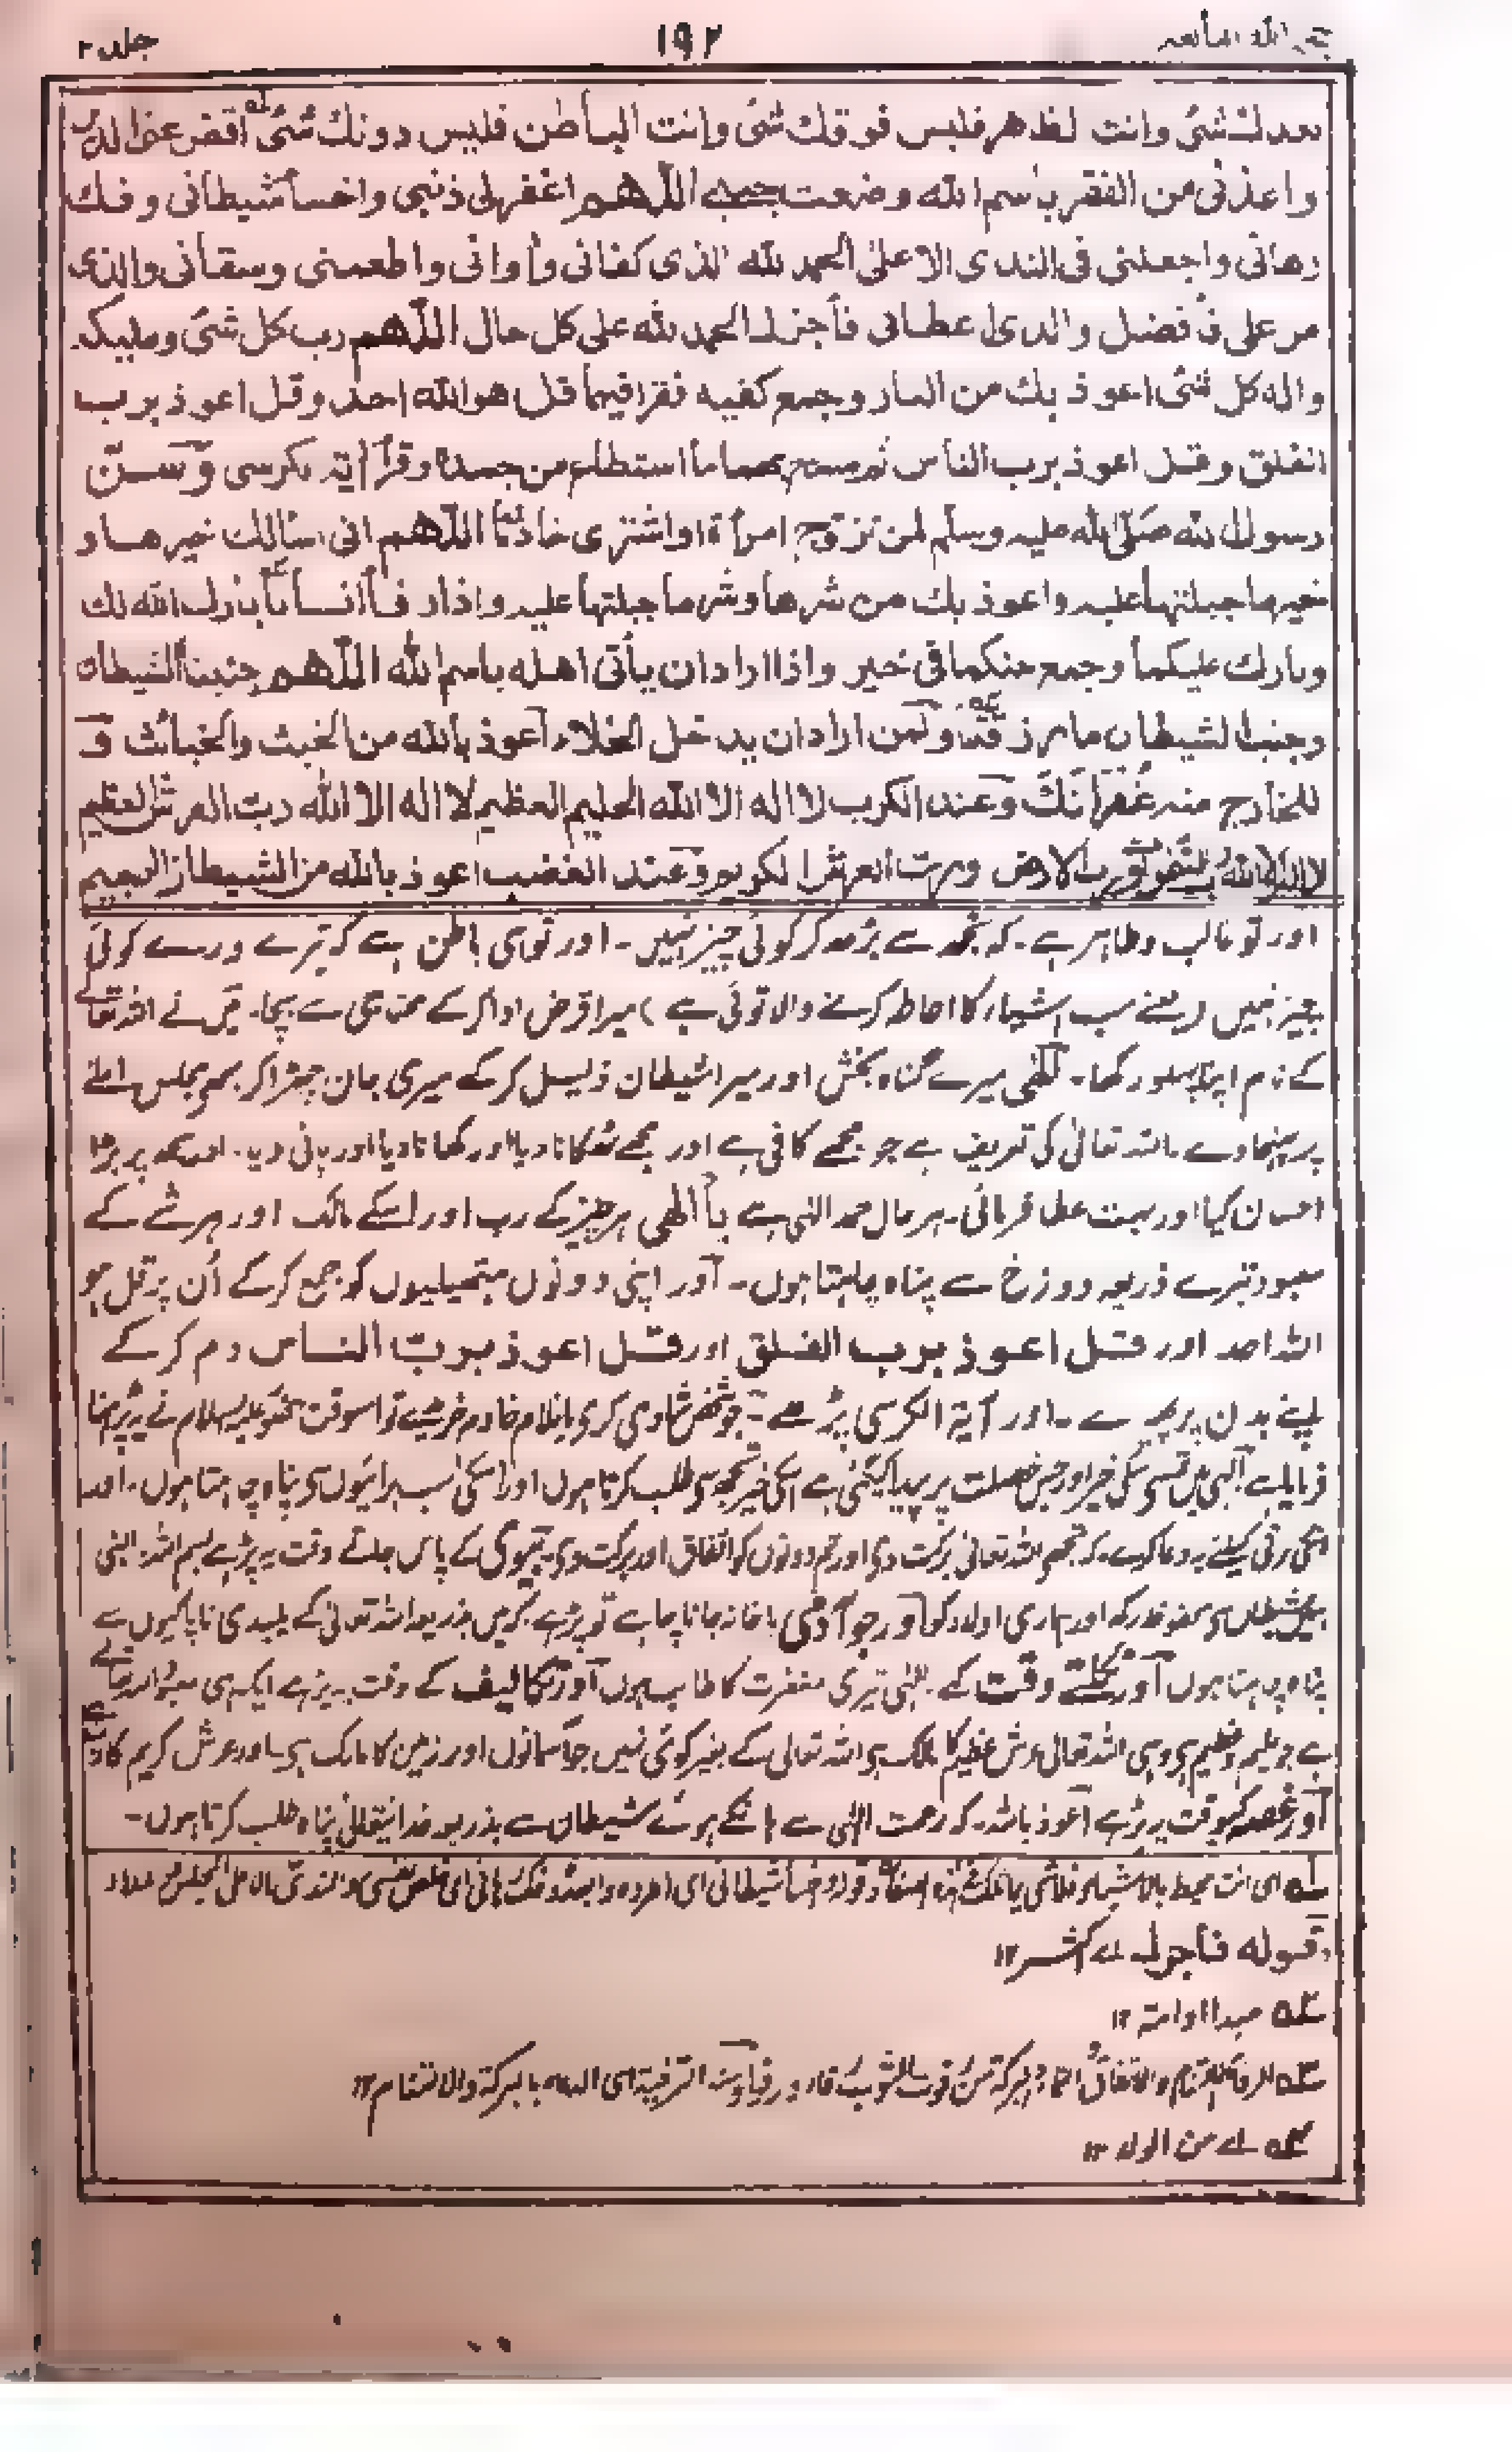 حجۃ اللہ البالغہ ۱۹۲ جلد ۲
بعدك شئ وانت الظاهر فليس فوقك شئ وانت الباطن فليس دونك شئ اقض عنا الدين
واعذنى من الفقر باسم الله وضعت جنبى اللّٰهم اغفرلى ذنبى واخسأ شيطانى وفك
رهانى واجعلنى فى الندى الاعلىٰ الحمد لله الذى كفانى وأوانى واطعمنى وسقانى والذى
من على فأفضل والذى اعطانى فأجزل الحمد لله على كل حال اللّٰهم رب كل شئ ومليكه
واله كل شئ اعوذ بك من النار وجمع كفيه فقرأ فيهما قل هو الله احد وقل اعوذ برب
الفلق وقل اعوذ برب الناس ثم مسح بهما ما استطاع من جسده وقرأ آية الكرسى وسنّ
رسول الله صلى الله عليه وسلم لمن تزوج امرأة او اشترى خادما اللّٰهم انى اسألك خيرها و
خير ما جبلتها عليه واعوذ بك من شرها وشر ما جبلتها عليه واذا رفأ انسانا بارك الله لك
وبارك عليكما وجمع بينكما فى خير واذا اراد ان يأتى اهله باسم الله اللّٰهم جنبنا الشيطان
وجنب الشيطان ما رزقتنا ولمن اراد ان يدخل الخلاء اعوذ بالله من الخبث والخبائث و
للخارج منه غُفْرَانَكَ وعند الكرب لا اله الا الله الحليم العظيم لا اله الا الله رب العرش العظيم
لا اله الا الله رب السموات ورب الارض ورب العرش الكريم وعند الغضب اعوذ بالله من الشيطان الرجيم
اور تو غالب وظاہر ہے۔ کہ تجھ سے بڑھ کر کوئی چیز نہیں۔ اور تو ہی باطن ہے کہ تیرے ورے کوئی
چیز نہیں (یعنے سب اشیاء کا احاطہ کرنے والا تو ہی ہے) میرا قرض ادا کرکے محتاجی سے بچا۔ میں نے اللہ تعالے
کے نام اپنا پہلو رکھا۔ الٰہی میرے گناہ بخش اور میرا شیطان ذلیل کرکے میری جان چھڑا کر مجھے مجلس اعلے
پر پہنچا دے۔ اللہ تعالیٰ کی تعریف ہے جو مجھے کافی ہے اور مجھے ٹھکانا دیا اور کھانا دیا اور پانی دیا۔ اور مجھ پر بڑا
احسان کیا اور بہت عطا فرمائی۔ ہر حال حمد الٰہی ہے یا الٰهی ہر چیز کے رب اور اسکے مالک اور ہر شے کے
معبود تیرے ذریعہ دوزخ سے پناہ چاہتا ہوں۔ اور اپنی دونوں ہتھیلیوں کو جمع کرکے اُن پر قل ہو
اللہ احد اور قل اعوذ برب الفلق اور قل اعوذ برب الناس دم کرکے
اپنے بدن پر پھیرے۔ اور آیۃ الکرسی پڑھے۔ جو شخص شادی کرے یا غلام خادم خریدے تو اسوقت آنحضرت علیہ السلام نے یہ پڑھنا
فرمایا ہے الٰہی میں اسکی خیر اور جس خصلت پر پیدا کیگئی ہے اسکی خیر تجھ سے طلب کرتا ہوں اور اسکی سب برائیوں سے پناہ چاہتا ہوں۔ اور
کیلئے یہ دعا کرے کہ تجھے اللہ تعالیٰ برکت دے اور تم دونوں کو اتفاق اور برکت دے۔ بیوی کے پاس جاتے وقت یہ پڑھے بسم اللہ الٰہی
ہمیں شیطان سے محفوظ رکھ اور ہماری اولاد کو اور جو آدمی پاخانہ جانا چاہے تو پڑھے کہ میں بذریعہ اللہ تعالیٰ کے پلیدی ناپاکیوں سے
پناہ چاہتا ہوں اور نکلتے وقت کہے الٰہی تیری مغفرت کا طالب ہوں اور تکالیف کے وقت یہ پڑھے ایک ہی معبود اللہ تعالے
ہے جو حلیم وعظیم ہے وہی اللہ تعالیٰ عرش عظیم کا مالک ہے اللہ تعالی کے بغیر کوئی نہیں جو آسمانوں اور زمین کا مالک ہے اور عرش کریم کا
اور غصہ کیوقت یہ پڑھے اعوذ باللہ۔ کہ رحمت الٰہی سے ہانکے ہوئے شیطان سے بذریعہ خدا تعالیٰ پناہ طلب کرتا ہوں۔
ای انت محیط بالاشیاء شیطانی ای اطرده وابعده وفک رہانی ای خلص نفسی والندی
قوله فأجزل اے اکثر ۱۲
عبدا او امۃ ۱۲
والاتفاق ای الدعاء بالبرکۃ والالتئام ۱۲
اے من الولد ۱۲